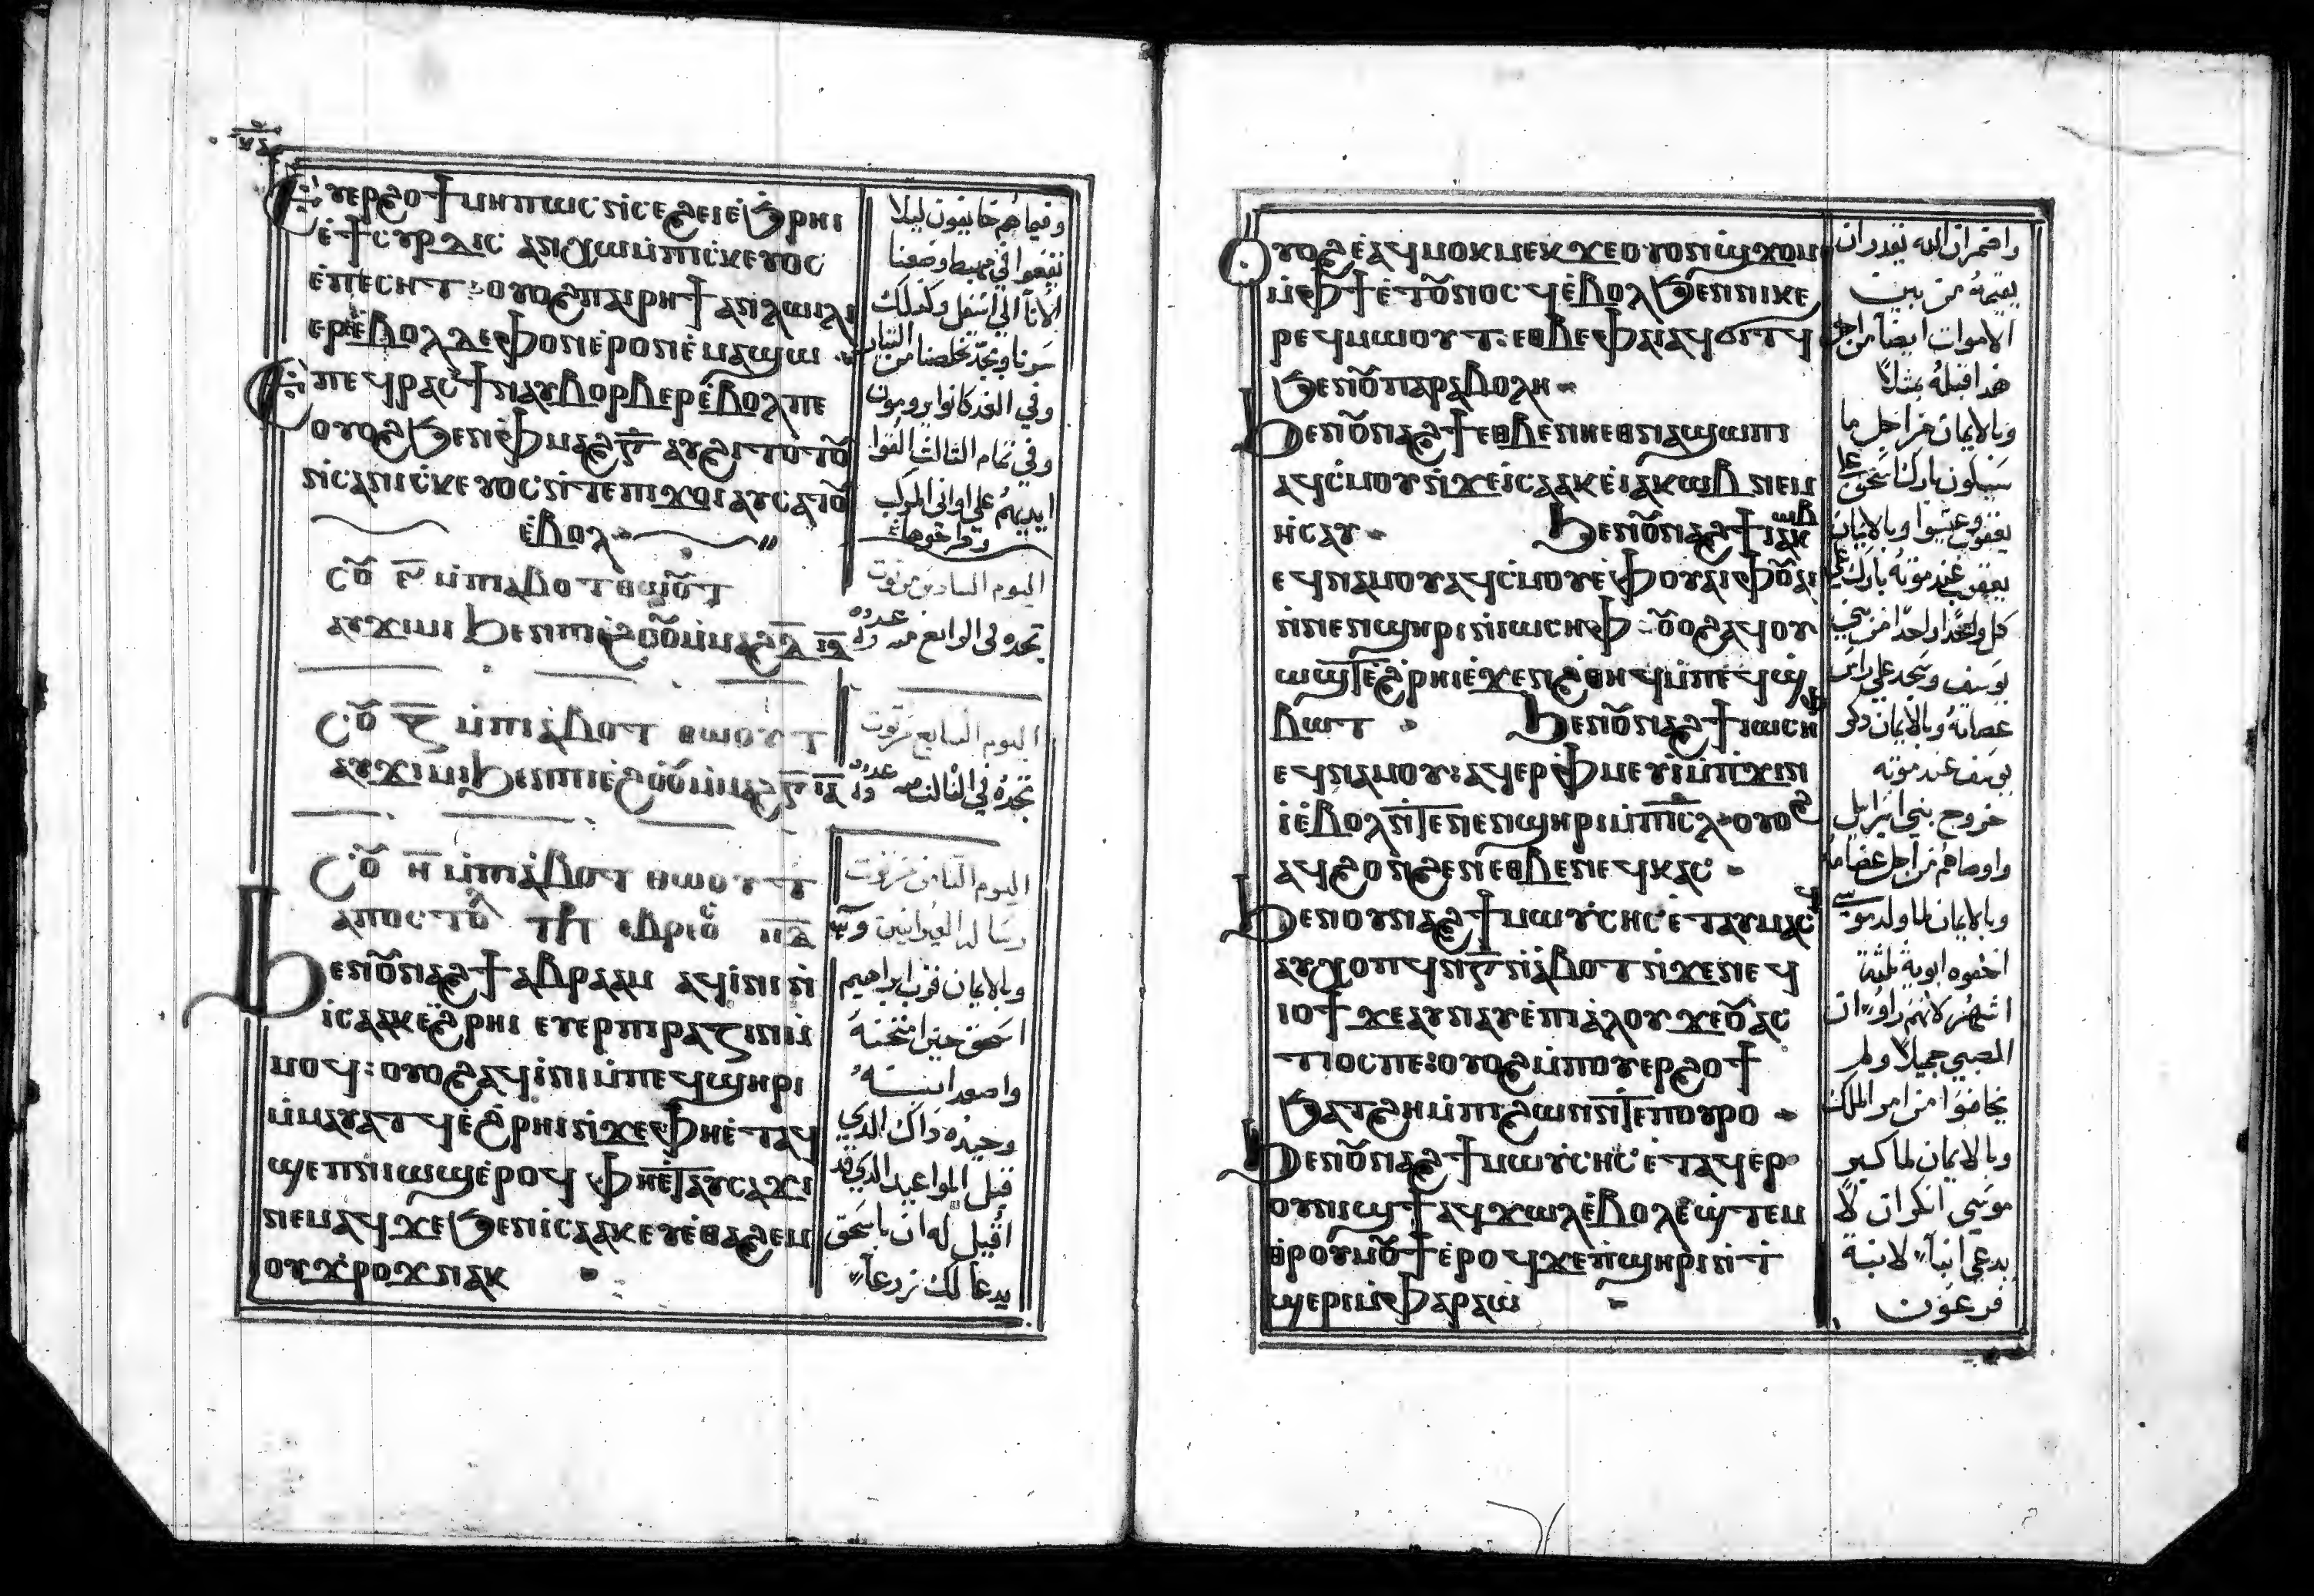 Ⲉⲩⲉⲣϩⲟϯ ⲙⲏⲡⲱⲥ ⲛ̀ⲥⲉϩⲉⲓ ⲉ̀ϧⲣⲏⲓ
ⲉ̀ϯⲥⲩⲣⲇⲓⲥ ⲁⲛⲭⲱ ⲙ̀ⲡⲓⲥⲕⲉⲩⲟⲥ
ⲉ̀ⲡⲉⲥⲏⲧ: ⲟⲩⲟϩ ⲡⲁⲓⲣⲏϯ ⲁⲛϩⲱⲗ
ⲉⲣⲉ̀ⲃⲟⲗ ⲇⲉ ⲫⲟⲛ ⲉ̀ⲣⲟⲛ ⲉ̀ⲙⲁϣⲱ
Ⲉ̀ⲡⲉϥⲣⲁⲥϯ ⲛⲁⲩⲃⲟⲣⲃⲉⲣ ⲉ̀ⲃⲟⲗ ⲡⲉ
ⲟⲩⲟϩ ϧⲉⲛ ⲫ̀ⲙⲁϩ ⲅ̅ ⲁⲩϩⲓⲧⲟⲧⲟ̅ⲩ
ⲛ̀ⲥⲁⲛⲓⲥⲕⲉⲩⲟⲥ ⲛ̀ⲧⲉ ⲡⲓϫⲟⲓ ⲁⲩⲥⲁⲧⲟ̅ⲩ
ⲉ̀ⲃⲟⲗ
ⲥⲟ̅ⲩ ⲋ̅ ⲙ̀ⲡⲓⲁ̀ⲃⲟⲧ ⲑⲱⲟ̅ⲩⲧ
ⲁⲩϫⲓⲙⲓ ϧⲉⲛ ⲡⲓⲉ̀ϩⲟⲟ̅ⲩ ⲙ̀ⲙⲁϩ ⲇ̅
ⲥⲟ̅ⲩ ⲍ̅ ⲙ̀ⲡⲓⲁ̀ⲃⲟⲧ ⲑⲱⲟⲩⲧ
ⲁⲩϫⲓⲙⲓ ϧⲉⲛ ⲡⲓⲉ̀ϩⲟⲟ̅ⲩ ⲙ̀ⲙⲁϩ ⲅ̅
ⲥⲟ̅ⲩ ⲏ̅ ⲙ̀ⲡⲓⲁ̀ⲃⲟⲧ ⲑⲱⲟⲩⲧ
ⲁⲡⲟⲥⲧⲟⲗ ⲉⲃⲣⲉⲟ
Ϧⲉⲛ ⲟ̅ⲩⲛⲁϩϯ ⲁⲃⲣⲁⲁⲙ ⲁϥⲓ̀ⲛⲓ ⲛ̀
ⲓⲥⲁⲁⲕ ⲉ̀ϩⲣⲏⲓ ⲉⲩⲉⲣⲡⲓⲣⲁⲍⲓⲛ ⲙ̀
ⲙⲟϥ: ⲟⲩⲟϩ ⲁϥⲓ̀ⲛⲓ ⲙ̀ⲡⲉϥϣⲏⲣⲓ
ⲙ̀ⲙⲁⲩⲁⲧϥ ⲉ̀ϩⲣⲏⲓ ⲛ̀ϫⲉ ⲫⲏⲉ̀ⲧⲁϥ
ϣⲉⲡ ⲛⲓⲱϣ ⲉ̀ⲣⲟϥ ⲫⲏⲉ̀ⲧⲁⲩⲥⲁϫⲓ
ⲛⲉⲙⲁϥ ϫⲉ ϧⲉⲛ ⲓⲥⲁⲁⲕ ⲉⲩⲉ̀ⲑⲁϩⲉⲙ
ⲟⲩϫⲣⲟϫ ⲛⲁⲕ
وفيما هم خايفون ليلا
نقعوا في مهبط وضعنا
الاناء الى اسفل وكذلك
وفي الغد كانوا يرمون
وفي تمام الثالث القوا
ايديهم على اواني المركب
وطرحوها
اليوم السادس من توت
تجده في الرابع منه
اليوم السابع من توت
تجده في الثالث منه
اليوم الثامن من توت
رسالة العبرانيين
وبالايمان قرب ابراهيم
اسحق حين امتحنه
واصعد ابنه
وحيده ذاك الذي
قبل المواعيد الذي قد
اقيل له ان باسحق
يدعا لك زرعا
Ⲟⲩⲟϩ ⲉ̀ⲁϥⲙⲟⲕⲙⲉⲕ ϫⲉ ⲟⲩⲟⲛ ϣϫⲟⲙ
ⲙ̀ⲫϯ ⲉ̀ⲧⲟ̅ⲩⲛⲟⲥϥ ⲉ̀ⲃⲟⲗ ϧⲉⲛ ⲛⲓⲕⲉ
ⲣⲉϥⲙⲱⲟⲩⲧ: ⲉⲑⲃⲉ ⲫⲁⲓ ⲁϥϭⲓⲧϥ
ϧⲉⲛ ⲟ̅ⲩⲡⲁⲣⲁⲃⲟⲗⲏ
Ϧⲉⲛ ⲟ̅ⲩⲛⲁϩϯ ⲉⲑⲃⲉ ⲛⲏⲉⲑⲛⲁϣⲱⲡⲓ
ⲁϥⲥ̀ⲙⲟⲩ ⲛ̀ϫⲉ ⲓⲥⲁⲁⲕ ⲉ̀ⲓⲁⲕⲱⲃ ⲛⲉⲙ
ⲏⲥⲁⲩ Ϧⲉⲛ ⲟ̅ⲩⲛⲁϩϯ ⲓⲁⲕⲱⲃ
ⲉϥⲛⲁⲙⲟⲩ ⲁϥⲥ̀ⲙⲟⲩ ⲉ̀ⲫⲟⲩⲁⲓ ⲫⲟ̅ⲩⲁⲓ
ⲛ̀ⲛⲉⲛϣⲏⲣⲓ ⲛ̀ⲓⲱⲥⲏⲫ: ⲟ̅ⲩⲟϩ ⲁϥⲟⲩ
ⲱϣⲧ ⲉ̀ϩⲣⲏⲓ ⲉ̀ϫⲉⲛ ϩⲑⲏϥ ⲙ̀ⲡⲉϥϣ
ⲃⲱⲧ Ϧⲉⲛ ⲟ̅ⲩⲛⲁϩϯ ⲓⲱⲥⲏⲫ
ⲉϥⲛⲁⲙⲟⲩ: ⲁϥⲉⲣⲫ̀ⲙⲉⲩⲓ̀ ⲙ̀ⲡϫⲓⲛ
ⲓ̀ ⲉ̀ⲃⲟⲗ ⲛ̀ⲧⲉ ⲛⲉⲛϣⲏⲣⲓ ⲙ̀ⲡⲓⲥ̅ⲗ̅ ⲟⲩⲟϩ
ⲁϥϩⲟⲛϩⲉⲛ ⲉⲑⲃⲉ ⲛⲉϥⲕⲁⲥ
Ϧⲉⲛ ⲟⲩⲛⲁϩϯ ⲙⲱⲩ̀ⲥⲏⲥ ⲉ̀ⲧⲁⲩⲙⲁⲥϥ
ⲁⲩⲭⲟⲡϥ ⲛ̀ⲅ̅ ⲛ̀ⲁ̀ⲃⲟⲧ ⲛ̀ϫⲉ ⲛⲉϥ
ⲓⲟϯ ϫⲉ ⲁⲩⲛⲁⲩ ⲉ̀ⲡⲓⲁ̀ⲗⲟⲩ ϫⲉ ⲟ̅ⲩⲁⲥ
ⲧⲓⲟⲥ ⲡⲉ: ⲟⲩⲟϩ ⲙ̀ⲡⲟⲩⲉⲣϩⲟϯ
ϧⲁⲧϩⲏ ⲙ̀ⲡⲓϩⲱⲛ ⲛ̀ⲧⲉ ⲡⲟⲩⲣⲟ
Ϧⲉⲛ ⲟ̅ⲩⲛⲁϩϯ ⲙⲱⲩ̀ⲥⲏⲥ ⲉ̀ⲧⲁϥⲉⲣ
ⲟⲩⲛⲓϣϯ ⲁϥϫⲱⲗ ⲉ̀ⲃⲟⲗ ⲉ̀ϣⲧⲉⲙ
ⲑⲣⲟⲩⲙⲟ̅ⲩϯ ⲉ̀ⲣⲟϥ ϫⲉ ⲡ̀ϣⲏⲣⲓ ⲛ̀ⲧ
ϣⲉⲣⲓ ⲙ̀ⲫⲁⲣⲁⲱ̀
واضمر ان الله يقدر ان
يقيمه من بين
الاموات ايضا من اجل
هذا قبله مثلا
وبالايمان من اجل ما
سيكون بارك اسحق على
يعقوب وعيسوا وبالايمان
يعقوب عند موته بارك على
كل واحدا واحدا من بني
يوسف وسجد على راس
عصاته وبالايمان ذكر
يوسف عند موته
خروج بني اسراييل
واوصاهم من اجل عظامه
وبالايمان لما ولد موسى
اخفوه ابويه ثلثة
اشهر لانهم راوا ان
الصبي جميلا ولم
يخافوا من امر الملك
وبالايمان لما كبر
موسى انكر ان لا
يدعي ابنا لابنة
فرعون